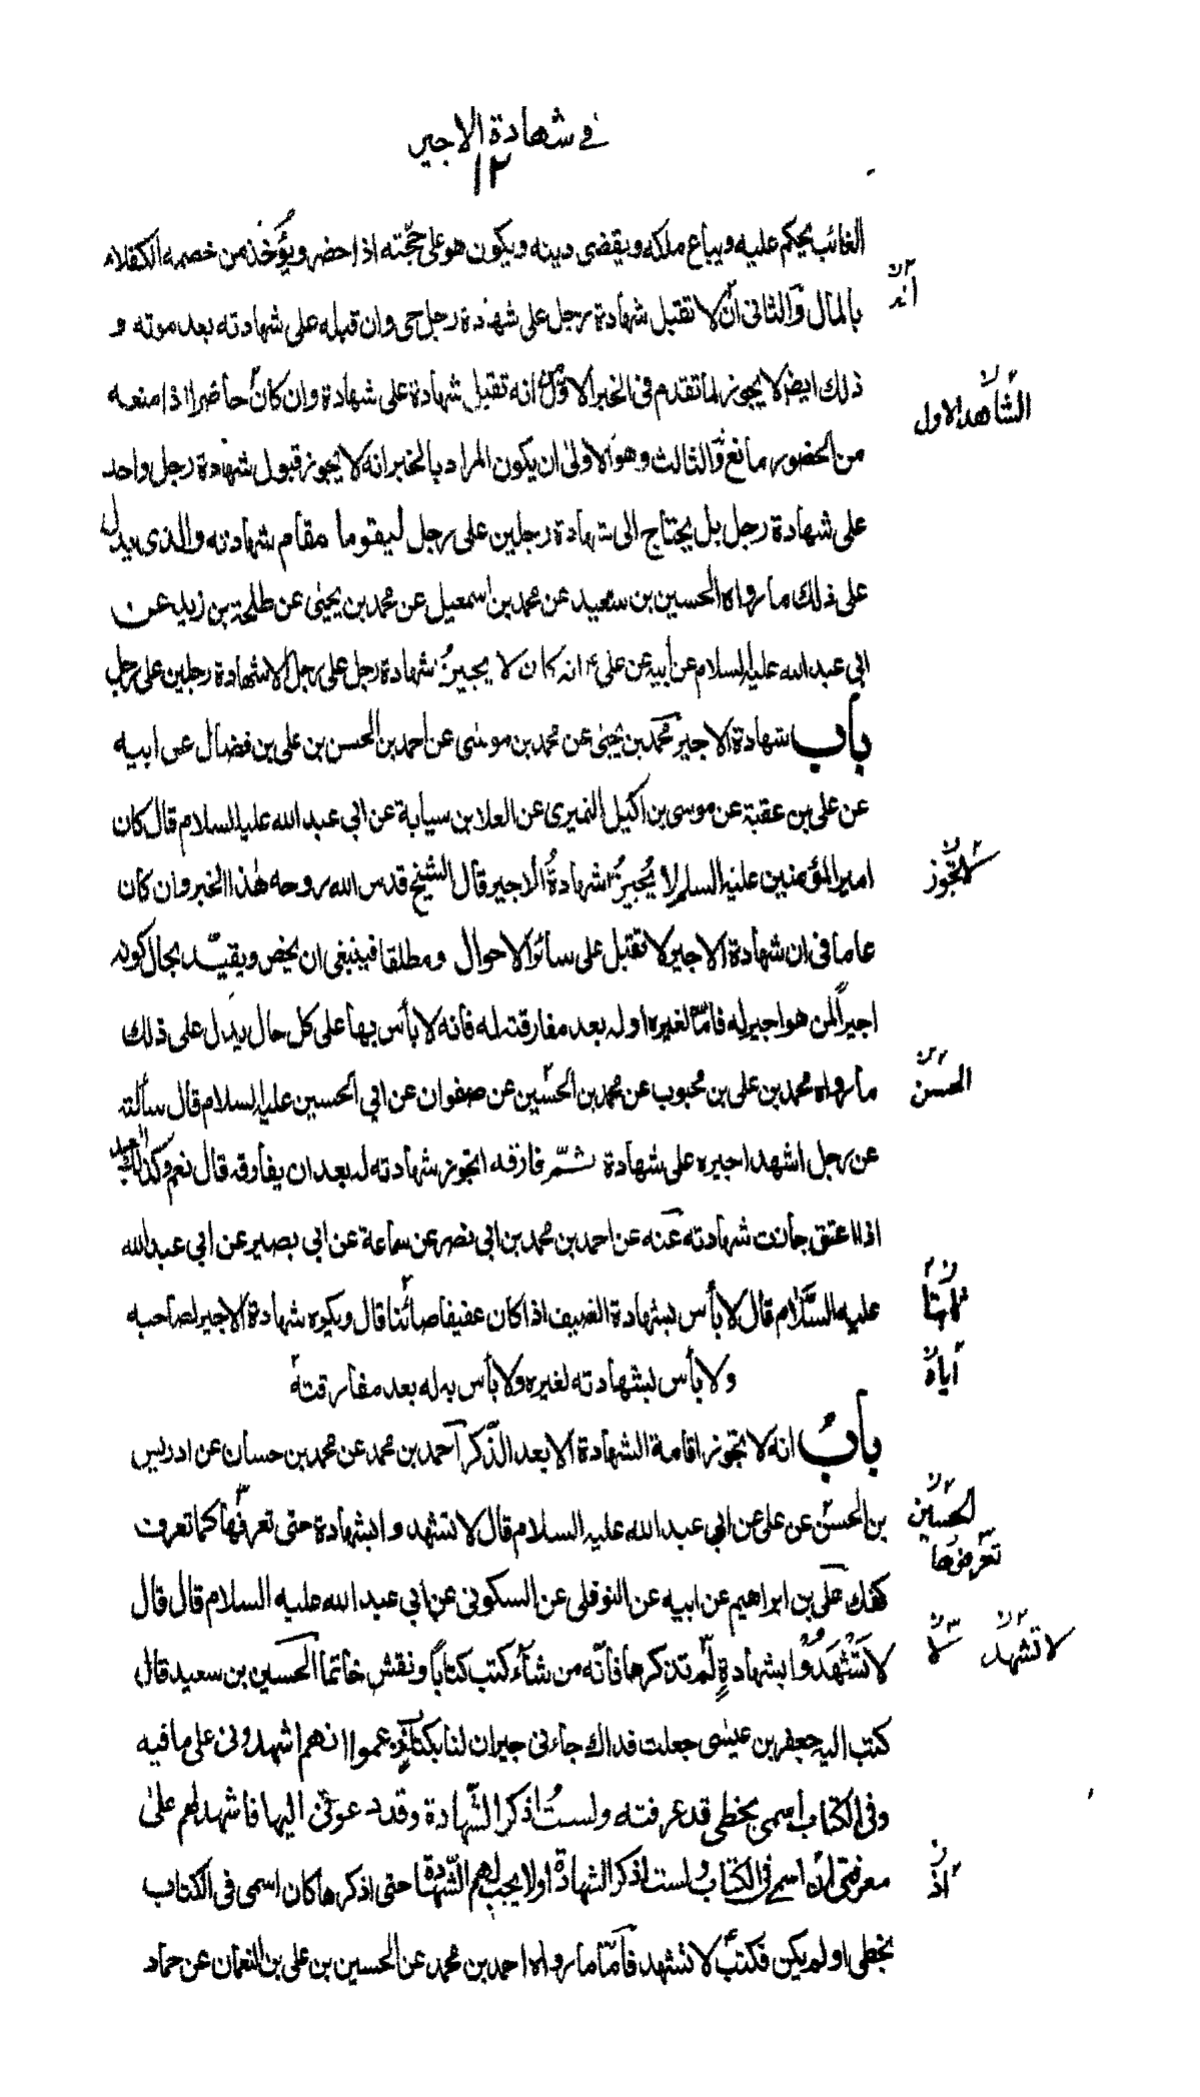 في شهادة الاجير
١٢
الغائب يحكم عليه ويباع ملكه ويقضى دينه ويكون هو على حجّته اذا حضر ويؤخذ من خصمه الكفلاء
بالمال والثانى انّ لا تقبل شهادة رجل على شهادة رجل حى وان قبله على شهادته بعد موته و
انه
ذلك ايض لا يجوز لما تقدم فى الخبر الاوّل انه تقبل شهادة على شهادة وان كان حاضرا اذا منعه
الشاهد الاول
من الحضور مانع والثالث وهو الاولى ان يكون المراد بالخبر انه لا يجوز قبول شهادة رجل واحد
على شهادة رجل بل يحتاج الى شهادة رجلين على رجل ليقوما مقام شهادته والذى يدل
على ذلك ما رواه الحسين بن سعيد عن محمد بن اسمعيل عن محمد بن يحيى عن طلحة بن زيد عن
ابى عبد الله عليه السلام عن أبيه عن على ع انه كان لا يجيزُ شهادة رجل على رجل الا شهادة رجلين على رجل
باب شهادة الاجير محمد بن يحيى عن محمد بن موسى عن احمد بن الحسن بن على بن فضال عن ابيه
عن على بن عقبة عن موسى بن اكيل النميرى عن العلا بن سيابة عن ابى عبد الله عليه السلام قال كان
امير المؤمنين عليه السلم لا يُجيزُ شهادةُ الأجير قال الشيخ قدس الله روحه هٰذا الخبر وان كان
لا تجوز
عاما فى ان شهادة الاجير لا تقبل على سائر الاحوال ومطلقا فينبغى ان يخص ويقيّد بحال كونه
اجيراً لمن هو اجير له فامّا لغيره او له بعد مفارقته له فانه لا بأس بها على كل حال يدل على ذلك
ما رواه محمد بن على بن محبوب عن محمد بن الحسين عن صفوان عن ابى الحسين عليه السلام قال سألته
الحسن
عن رجل اشهد اجيره على شهادة ثمّ فارقه اتجوز شهادته له بعد ان يفارقه قال نعم وكذلك العبد
اذا اعتق جازت شهادته عنه عن احمد بن محمد بن ابى نصر عن سماعة عن ابى بصير عن ابى عبد الله
عليه السَّلام قال لا بأس بشهادة الضيف اذا كان عفيفا صائنا قال ويكره شهادة الاجير لصاحبه
ولا بأس بشهادته لغيره ولا بأس به له بعد مفارقته
اياه
بابُ انه لا تجوز اقامة الشهادة الا بعد الذّكر احمد بن محمد عن محمد بن حسان عن ادريس
بن الحسن عن على عن ابى عبد الله عليه السلام قال لا تشهدوا بشهادة حتى تعرفها كما تعرف
الحسين
كفك على بن ابراهيم عن ابيه عن النوفلى عن السكونى عن ابى عبد الله عليه السلام قال قال
لا تَشْهَدُوْا بشهادةٍ لم تذكرها فانّه من شآء كتب كتاباً ونقش خاتما الحسين بن سعيد قال
لا تشهد لا
كتب اليه جعفر بن عيسى جعلت فداك جاءنى جيران لنا بكتاب زعموا انهم اشهدونى على ما فيه
وفى الكتاب اسمى بخطى قد عرفته ولستُ اذكر الشّهادة وقد دعونى اليها فاشهد لهم على
معرفتى انّ اسمى فى الكتاب ولست اذكر الشهادة اولا يجب لهم الشّهادة حتى اذكرها كان اسمى فى الكتاب
بخطى او لم يكن فكتب لا تشهد فامّا ما رواه احمد بن محمد عن الحسين بن على بن النعمان عن حماد